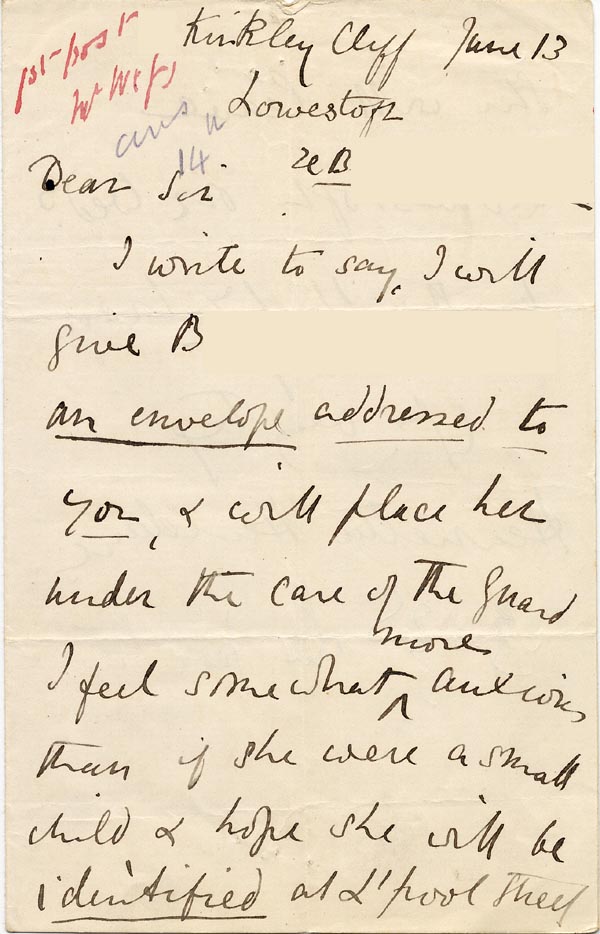 1st post
Kirkley Cliff June 13
Lowestoft
ans
14
re B
Dear Sir
I write to say, I will
give B
an envelope addressed to
you, & will place her
under the care of the Guard
more
I feel somewhat ^ anxious
than if she were a small
child & hope she will be
identified at L'pool Street